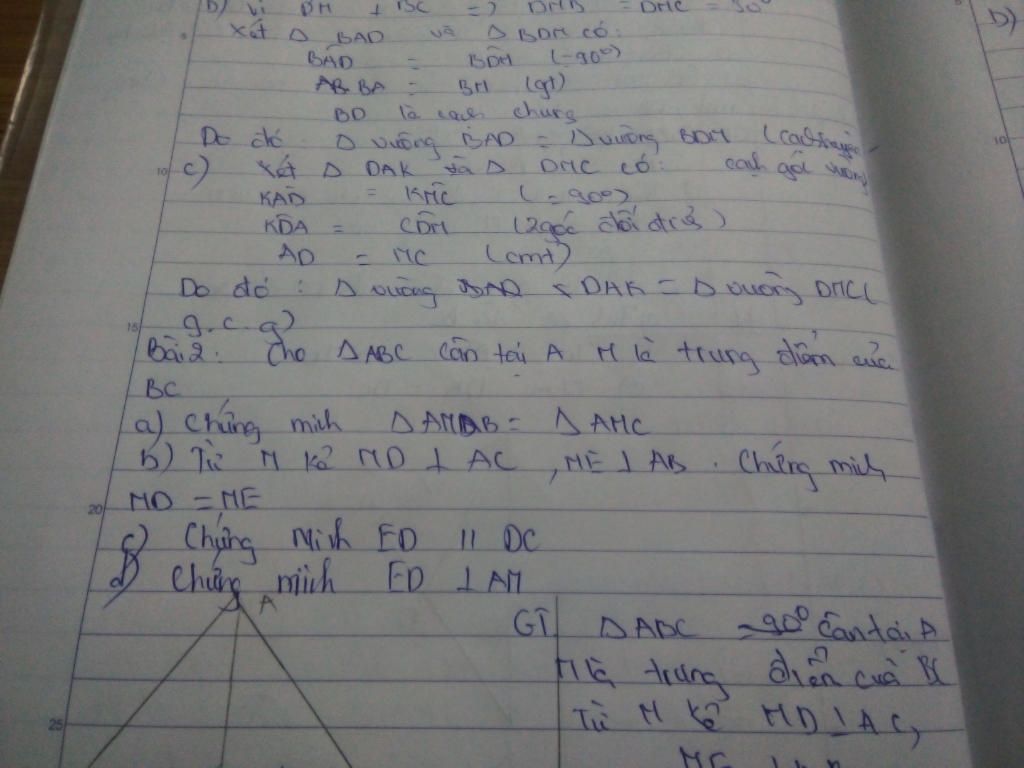 b) Vì DM ⊥ BC => DMB = DMC = 90°
b)
Xét Δ BAD và Δ BDM có:
BAD = BDM (=90°)
BA = BM (gt)
BD là cạnh chung
Do đó: Δ vuông BAD = Δ vuông BDM (cạnh huyền -
cạnh góc vuông
c) Xét Δ DAK và Δ DMC có:
KAD = KMC (=90°)
KDA = CDM (2 góc đối đỉnh)
AD = MC (cmt)
Do đó: Δ vuông DAK = Δ vuông DMC (
g.c.g)
Bài 2: Cho ΔABC cân tại A M là trung điểm của
BC
a) Chứng minh ΔAMB = ΔAMC
b) Từ M kẻ MD ⊥ AC, ME ⊥ AB. Chứng minh
MD = ME
c) Chứng Minh ED // DC
d) Chứng minh ED ⊥ AM
A
GT ΔABC cân tại A
M là trung điểm của BC
Từ M kẻ MD ⊥ AC,
5
10
15
20
25
10